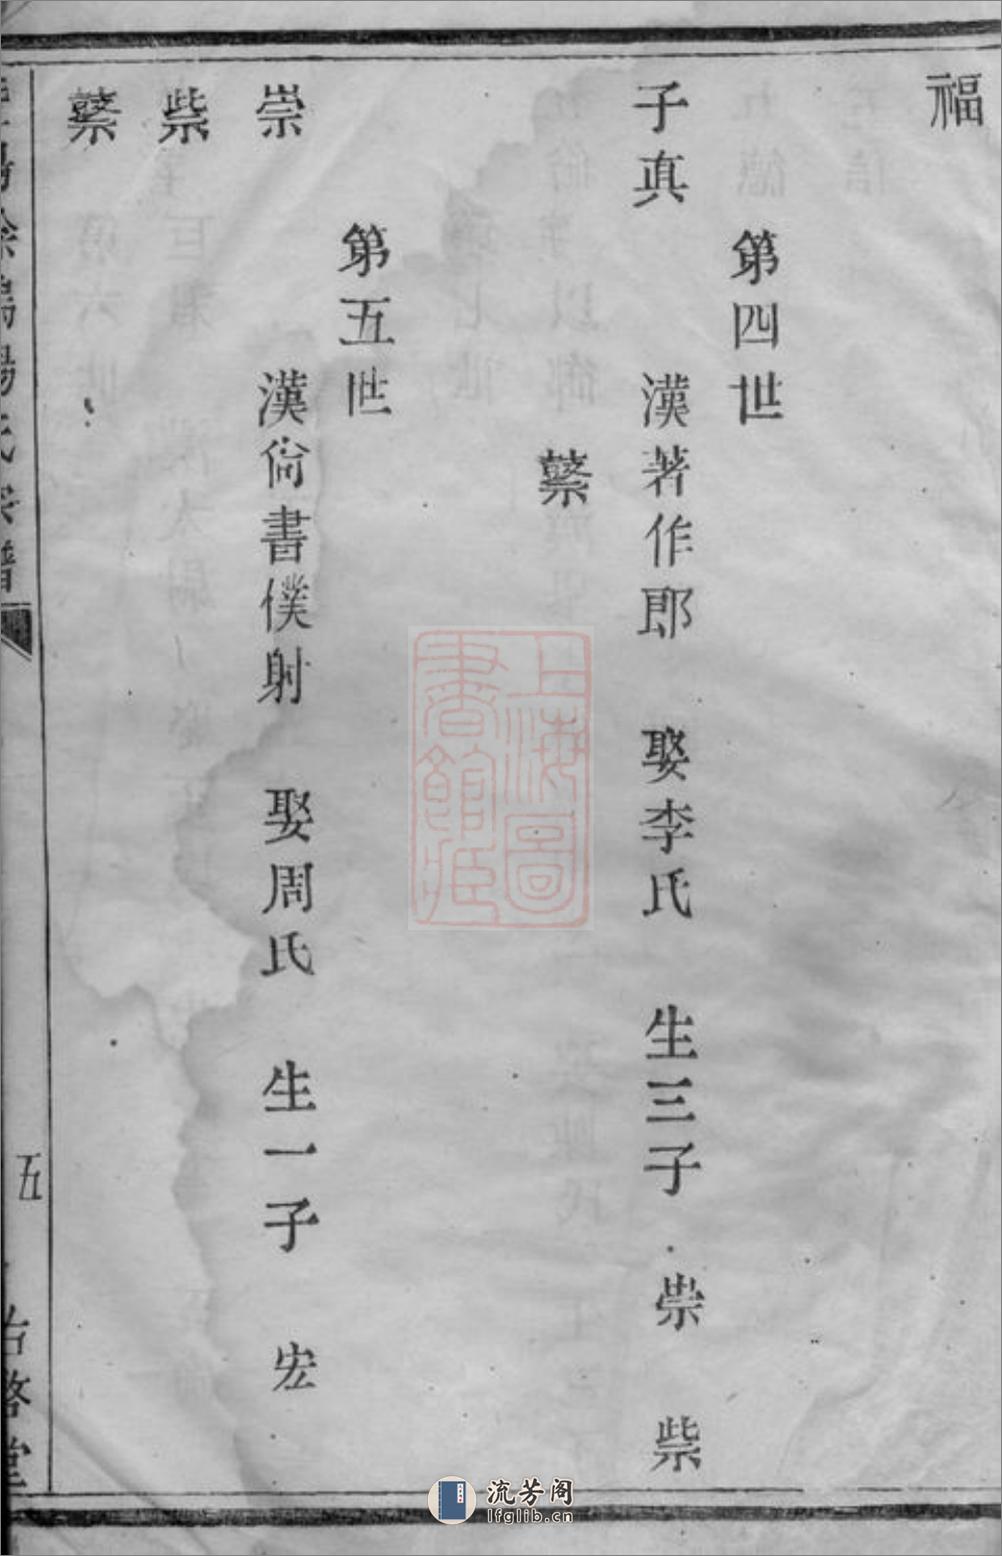 福
第四世
子真 漢著作郎 娶李氏 生三子 崇 祡
蘩
第五世
崇 漢尙書僕射 娶周氏 生一子 宏
祡
蘩
五
上海圖書館藏
流芳阁
lfglib.cn